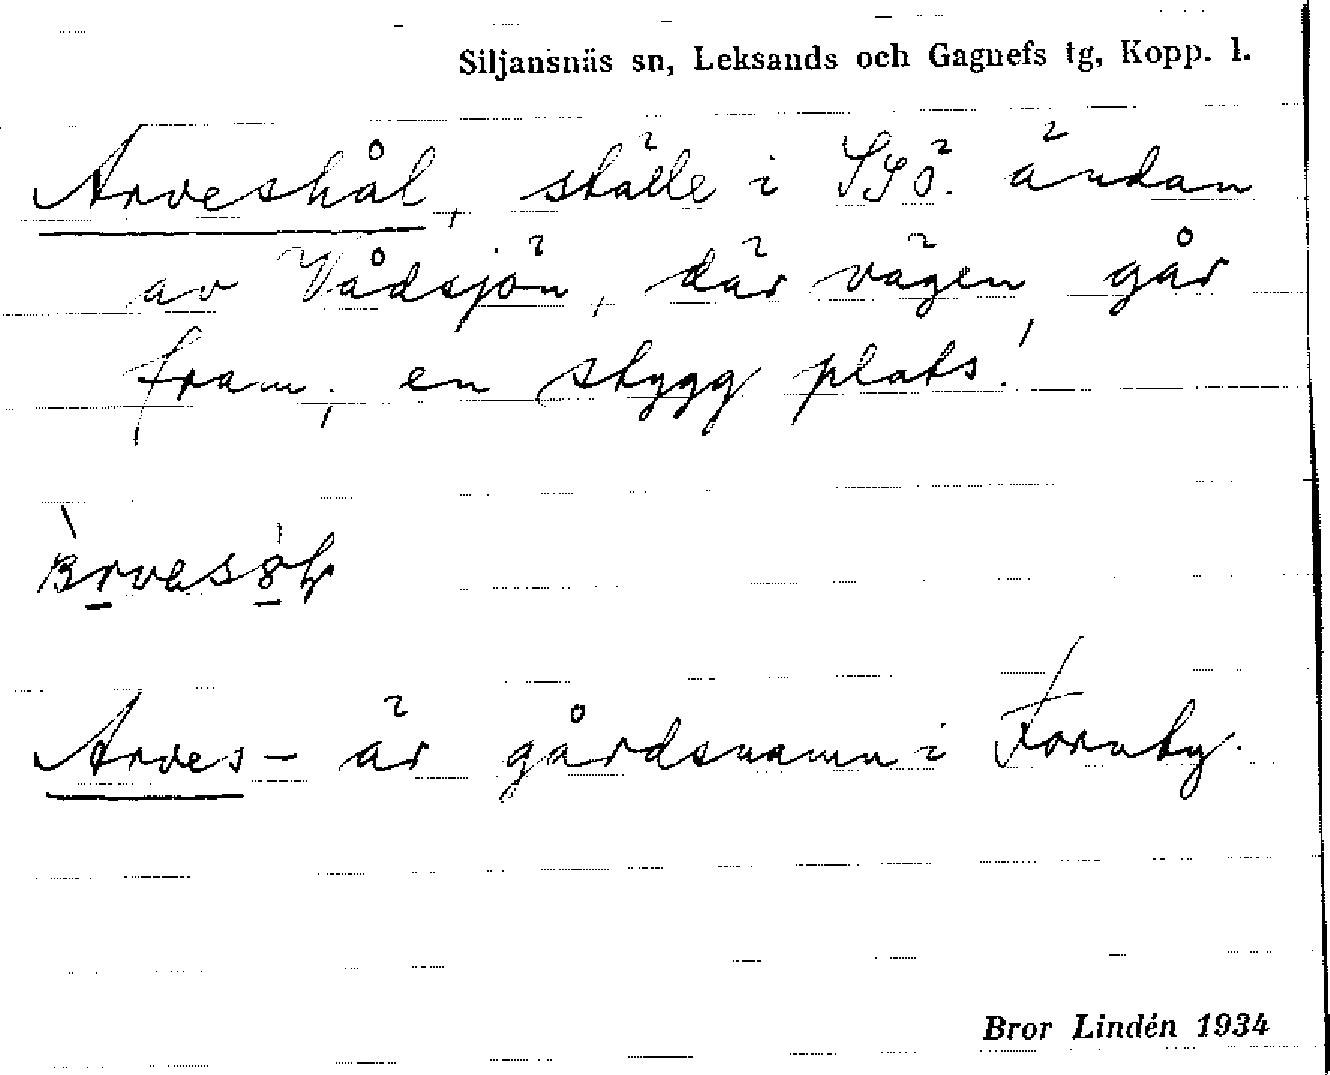 Siljansnäs sn, Leksands och Gagnefs tg, Kopp. l.
Arveshål, ställe i SSö. ändan
av Vådsjön, där vägen går
fram; en stygg plats!
Arves- är gårdsnamn i Fornby.
Bror Lindén 1934